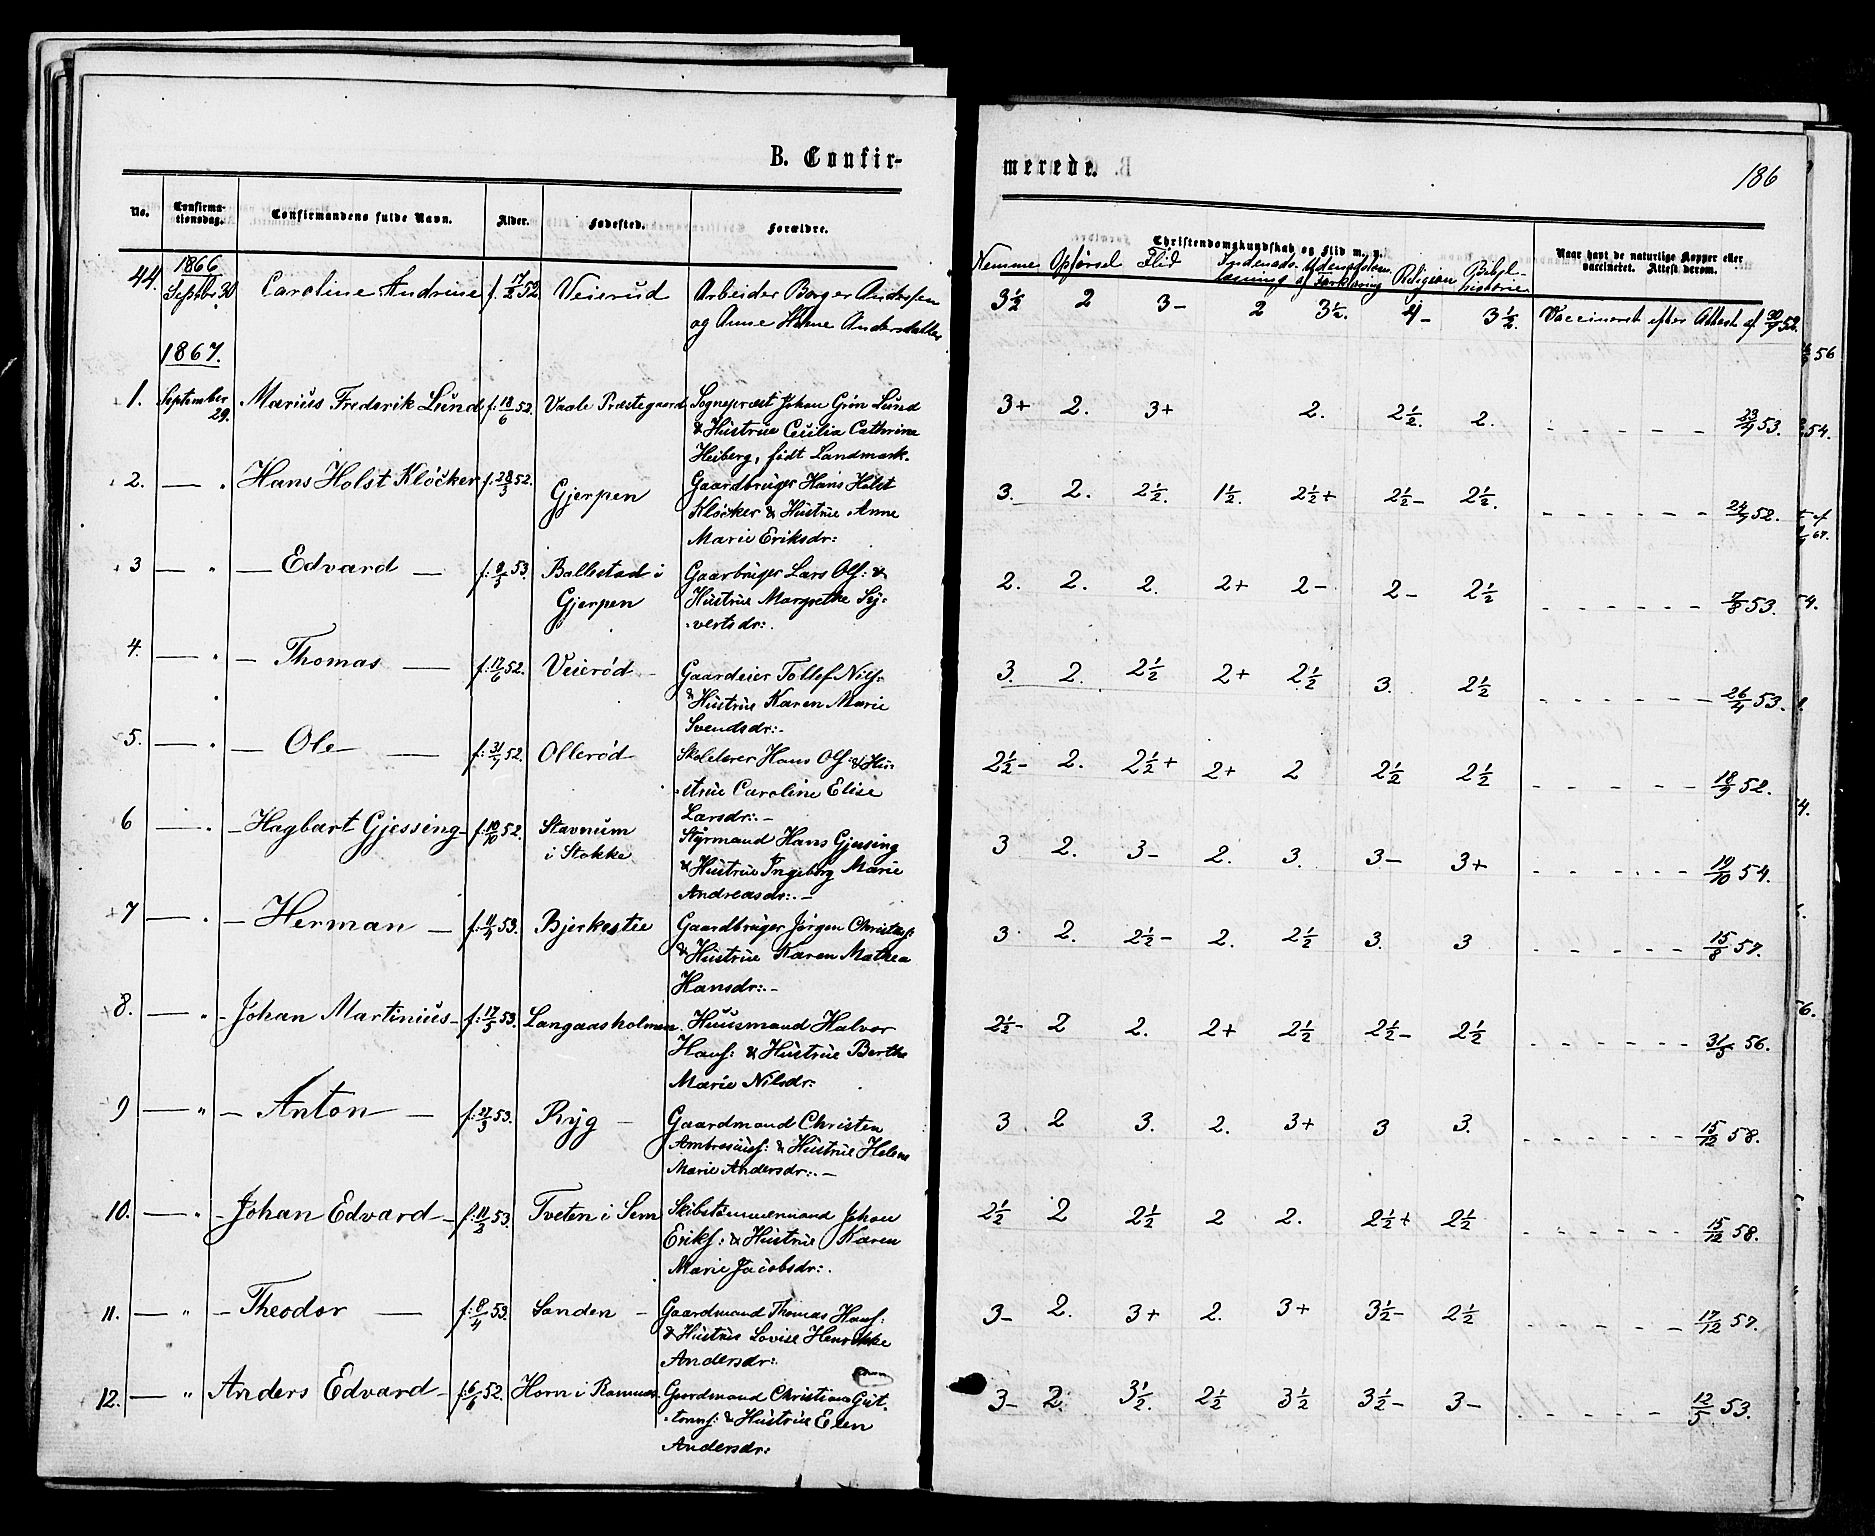 B. Confir-
merede.
186
No.
Confirma-
tionsdag.
Confirmandens fulde Navn.
Alder.
Fødested.
Forældre.
Christendomskundskab og Flid m. v.
Naar havt de naturlige Kopper eller
vaccineret. Attest derom.
Nemme Opførsel Flid Indenads- læsning Udenadslæsn. af Forklaring Religion Bibel- historie
44. 1866 Septbr 30 Caroline Andrine f. 17/2 52 Veierud Arbeider Borger Andersen
og Anne Helene Andersdatter
3 1/2 2 3- 2 3 1/2. 4- 3 1/2. Vaccineret efter Attest af 30/9 52.
1867.
1. September 29. Marius Frederik Lund f. 18/6 52. Vaale Præstegaard Sognepræst Johan Grøn Lund
& Hustrue Cecilia Cathrine
Heiberg, født Landmark.
3+ 2. 3+ 2. 2 1/2. 2. - - - - - 23/9 53.
2. — " Hans Holst Kløcker f. 28/3 52. Gjerpen Gaardbruger Hans Holst
Kløcker & Hustrue Anne
Marie Eriksdr:
3. 2. 2 1/2. 1 1/2. 2 1/2+ 2 1/2- 2 1/2. - - - - - 24/9 52.
3 — " — Edvard — f. 8/3 53. Ballestad i
Gjerpen
Gaarbruger Lars Ols: &
Hustrue Margrethe Sy-
vertsdr:
2. 2. 2. 2+ 2- 2- 2 1/2 - - - - - 7/8 53.
4. — " — Thomas — f. 17/6 52. Veierød - Gaardeier Tollef Nils:
& Hustrue Karen Marie
Svendsdr:-
3. 2. 2 1/2 2+ 2 1/2 3. 2 1/2 - - - - - 26/4 53.
5. — " — Ole — f. 31/7 52. Ollerød Skolelærer Hans Ols: & Hu-
strue Caroline Elise
Larsdr:-
2 1/2- 2. 2 1/2+ 2+ 2 2 1/2 2 1/2 - - - - - 18/9 52.
6 — " — Hagbart Gjessing - f. 10/10 52. Stavnum
i Stokke
Styrmand Hans Gjessing
& Hustrue Ingeborg Marie
Andreasdr:-
3 2. 3- 2. 3. 3- 3+ - - - - - 19/10 54.
7 — " — Herman — f. 11/4 53. Bjerkestie Gaardbruger Jørgen Christens:
& Hustrue Karen Mathea
Hansdr:-
3 2. 2 1/2- 2. 2 1/2 3. 3 - - - - - 15/8 57.
8. — " - Johan Martinius - f. 17/3 53. Langaasholmen Huusmand Halvor
Hans: & Hustrue Berthe
Marie Nilsdr:
2 1/2- 2 2. 2+ 2 1/2 2 1/2- 2 1/2 - - - - - 31/5 56.
9 — " — Anton — f. 27/3 53. Ryg - Gaardmand Christen
Ambrosiuss: & Hustrue Helene
Marie Andersdr:-
3 2 3. 2. 3+ 3 3. - - - - - 15/12 58.
10. — " - Johan Edvard - f. 11/2 53. Tveten i Sem Skibstømmermand Johan
Eriks: & Hustrue Karen
Marie Jacobsdr:.
2 1/2 2 2 1/2 2 2. 2 1/2+ 2 1/2 - - - - - 15/12 58.
11. — " - Theodor — f. 8/4 53. Sanden - Gaardmand Thomas Hans:
& Hustrue Lovise Henrikke
Andersdr:
3- 2. 3+ 2. 3+ 3 1/2- 2 1/2 - - - - - 17/12 57.
12. — " Anders Edvard - f. 6/6 52. Horn i Ramnæs Gaardmand Christian Gut-
torms: & Hustrue Elen
Andersdr:
3- 2. 3 1/2. 2 1/2 3 1/2 3 1/2- 3- - - - - - 12/5 53.